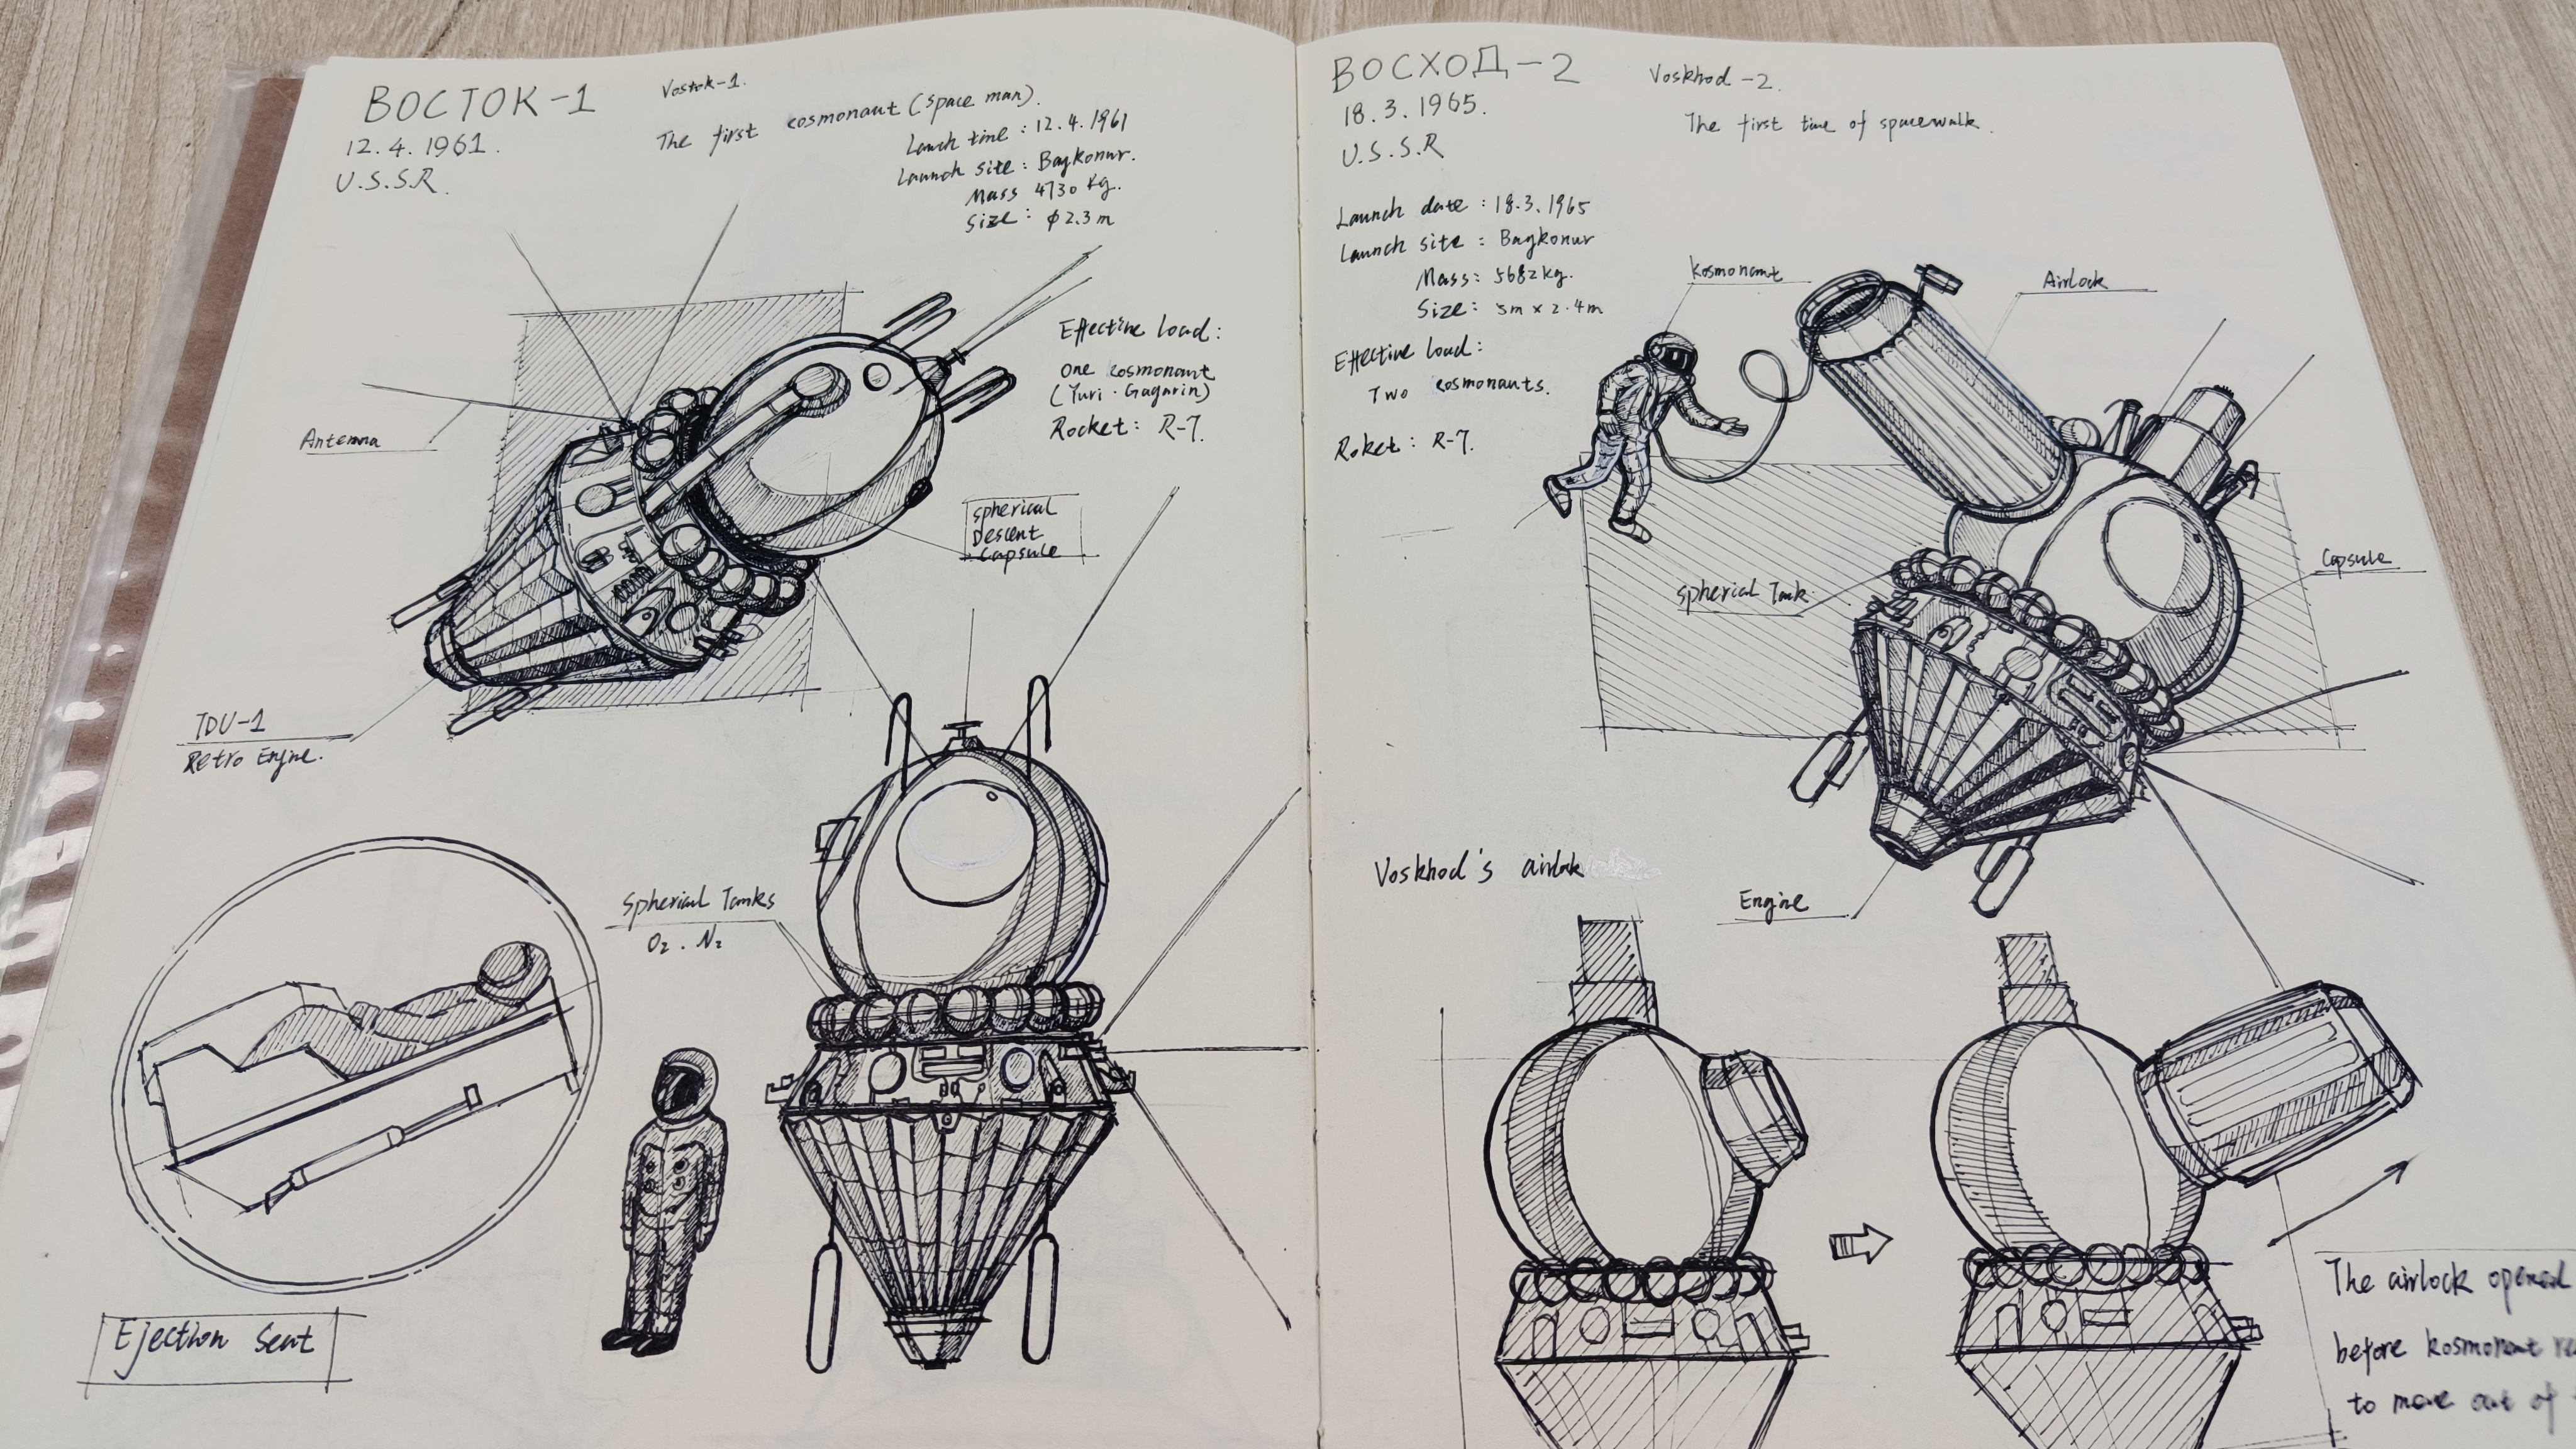 ВОСТОК-1
Vostok-1.
12.4.1961.
U.S.S.R.
The first cosmonaut (space man).
Launch time : 12.4.1961
Launch site : Baykonur.
Mass 4730 kg.
Size : φ2.3m
Effective load:
one cosmonaut
(Yuri · Gagarin)
Rocket: R-7.
Antenna
spherical
Descent
capsule
TDU-1
Retro Engine.
Spherical Tanks
O₂ . N₂
Ejection Seat
ВОСХОД-2
Voskhod -2.
18.3.1965.
U.S.S.R
The first time of spacewalk.
Launch date : 18.3.1965
Launch site : Baykonur
Mass: 5682kg.
Size: 5m x 2.4m
Effective load:
Two cosmonauts.
Roket: R-7.
Kosmonant
Airlock
Spherical Tank
Capsule
Engine
Voskhod's airlok
The airlock opened
before kosmonant
to move out of